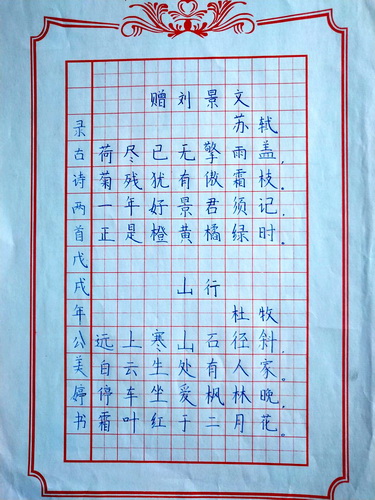 赠刘景文
苏轼
荷尽已无擎雨盖,
菊残犹有傲霜枝。
一年好景君须记,
正是橙黄橘绿时。
山行
杜牧
远上寒山石径斜,
白云生处有人家。
停车坐爱枫林晚,
霜叶红于二月花。
录古诗两首戊戌年公美婷书